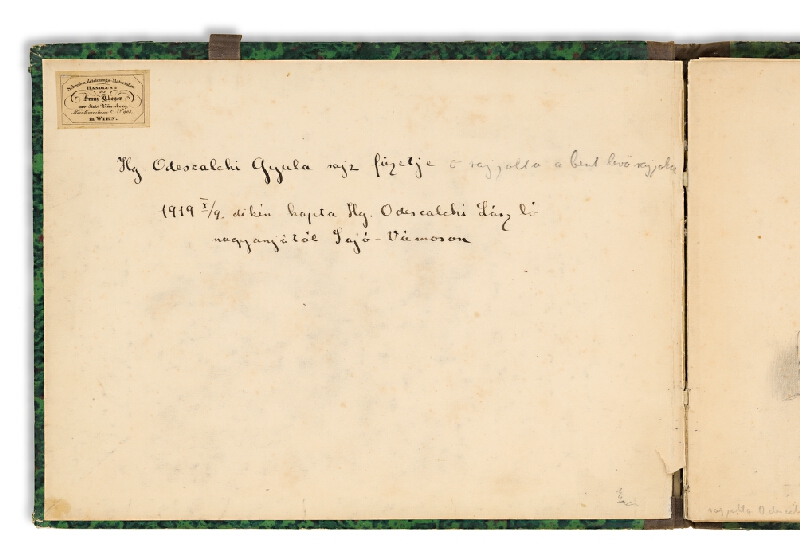 HANDLUNG
in WIEN.
Hg Odescalchi Gyula rajz füzetje ő rajzolta a bent levő rajzokat
1919 X/9. dikén kapta Hg. Odescalchi László
nagyanyjától Sajó-Vámoson